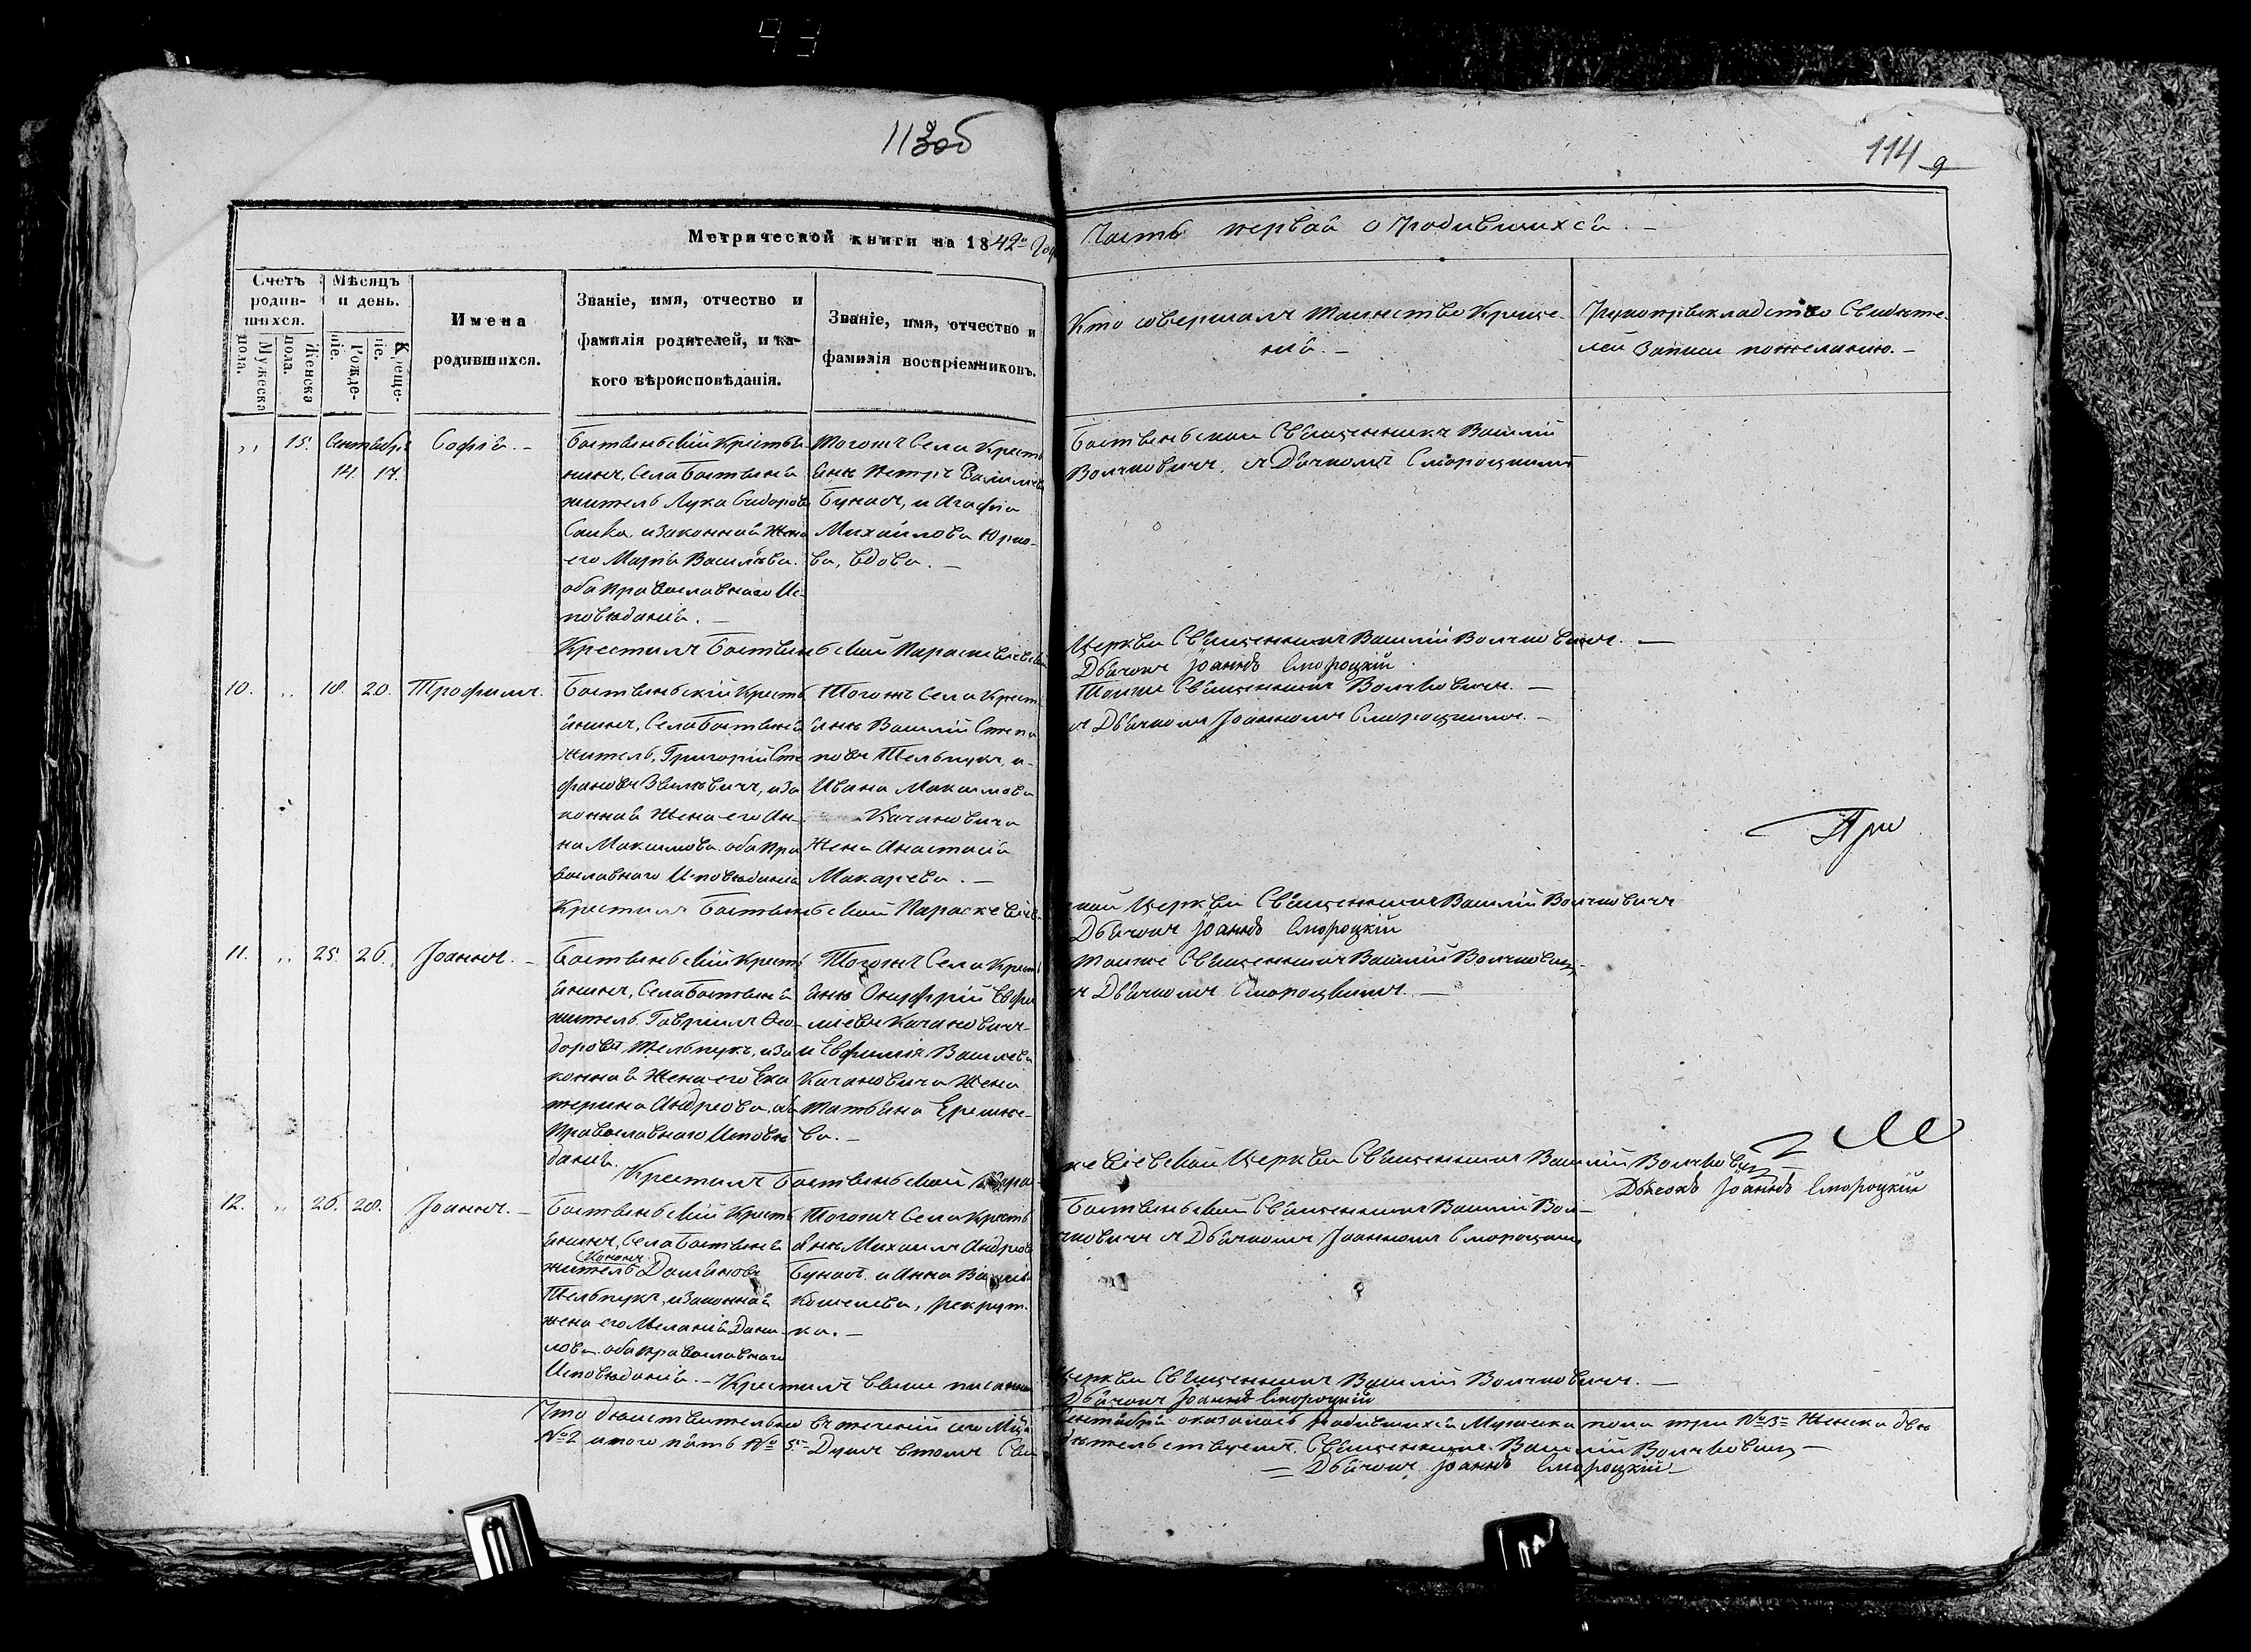 93
113об
114
9
Метрической книги на 1842й Годъ
Часть первая о родившихся. –
Счетъ родив-шихся.
Мужеска пола.
Женска пола.
Мѣсяцъ и день.
Рожде-ніе.
Креще-ніе.
Имена родившихся.
Званіе, имя, отчество и фамилія родителей, и ка-кого вѣроисповѣданія.
Званіе, имя, отчество и фамилія воспріемниковъ.
Кто совершалъ таинство Креще-нія. –
Рукоприкладство Свидѣте-лей Записи по желанію. –
,, 15. Сентября 14. 17. Софія. –
Боствинскій Крестья
нинъ, Села Боствиня
житель Лука Сидоровъ
Савка, и законная Жена
его Марія Васильева.
оба православнаго Ис-
повѣданія. –
Тогожъ Села Кресть
янъ Петръ Василіевъ
Бунасъ, и Агафія
Михайлова
ва, вдова. –
Боствинской Священникъ Василій
Волчковичъ. съ Дьячкомъ Смороцкимъ
Крестилъ Боствинской Параскевіевской
Церкви Священникъ Василій Волчковичъ. –
Дьячокъ Іоаннъ Смороцкій
10. ,, 18. 20. Трофимъ.
Боствинскій Кресть
янинъ, Села Боствиня
житель, Григорій Сте
фановъ и за
конная Жена его Ан-
на Максимова. оба пра
вославнаго Исповѣданія
Тогожъ Села Кресть
янъ Василій Стефа
новъ Тельпукъ, и
Ивана Максимова
Качановича
Жена Анастасія
Макарева. –
Тотже Священникъ Волчковичъ. –
съ Дьячкомъ Іоанномъ Смороцкимъ. –
При
Крестилъ Боствинской Параскевіев
ской Церкви Священникъ Василій Волчковичъ
Дьячокъ Іоаннъ Смороцкій
11. ,, 25. 26. Іоаннъ. –
Боствинскій Кресть
янинъ, Села Боствиня
житель. Гавріилъ Ѳео-
доровъ Тельпукъ, и за
конная Жена его Ека
терина Андреова, оба
православнаго Исповѣ
данія.
Тогожъ Села Кресть
янъ Онуфрій Евфи
міевъ Качановичъ
и Евфимія Василева
Качановича Жена
Татьяна
ва. –
Тотже Священникъ Василій Волчковичъ
съ Дьячкомъ Смороцкимъ. –
Крестилъ Боствинской Пара
скевіевской Церкви Священникъ Василій Волчковичъ
Дьячокъ Іоаннъ Смороцкій
12. ,, 26. 28. Іоаннъ. –
Боствинскій Кресть
янинъ, Села Боствиня
житель Даміановъ
Тельпукъ, и законная
жена его Меланія Дани-
лова. оба православнаго
Исповѣданія. –
Тогожъ Села Кресть
янъ Михаилъ Андреовъ
Бунасъ. и Анна
Кошелева, рекрут-
ка. –
Боствинской Священникъ Василій Вол-
чковичъ съ Дьячкомъ Іоанномъ Смороцкимъ
Крестилъ выше писанной
Церкви Священникъ Василій Волчковичъ. –
Дьячокъ Іоаннъ Смороцкій
Что дѣйствительно въ теченіи сего Мѣсяца Сентября оказалось родившихся Мужеска пола три № 3 Женска двѣ
№ 2 итого пять № 5 Душъ втомъ Свидѣтельствуемъ. Священникъ Василій Волчковичъ –
Дьячокъ Іоаннъ Смороцкій –